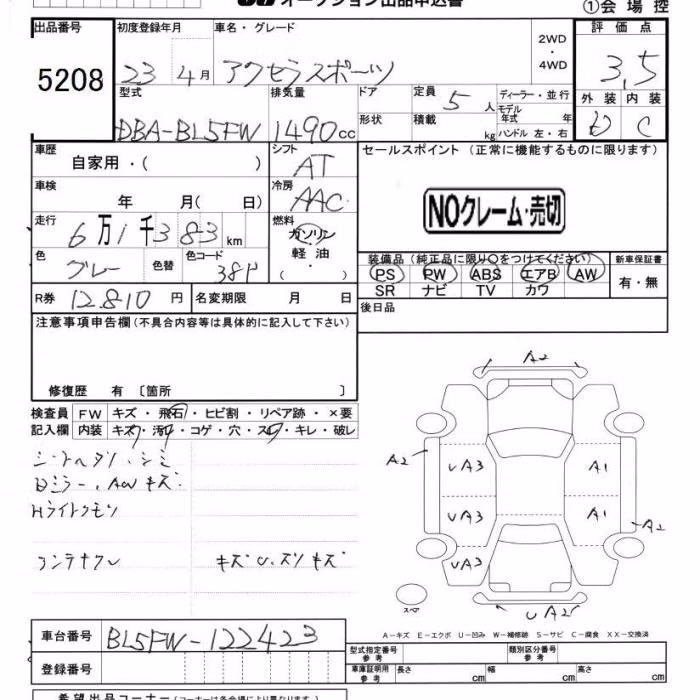 オークション出品申込書
①会場控
出品番号
5208
初度登録年月
23 4月
車名・グレード
アクセラスポーツ
2WD
・
4WD
評価点
3.5
外装 内装
D C
型式
DBA-BL5FW
排気量
1490 cc
ドア
形状
定員 5 人
積載 kg
ディーラー・並行
モデル年式 年
ハンドル 左・右
車歴
自家用・( )
シフト
AT
セールスポイント (正常に機能するものに限ります)
車検
年 月( 日)
冷房
AAC
NOクレーム・売切
走行
6万1千383km
燃料
ガソリン
軽油
・( )
色
グレー
色替
色コード
38P
装備品 (純正品に限り○をつけてください)
PS PW ABS エアB AW
SR ナビ TV カワ
新車保証書
有・無
R券 12.810 円
名変期限 月 日
後日品
注意事項申告欄 (不具合内容等は具体的に記入して下さい)
修復歴 有 〔箇所 〕
検査員 FW キズ・飛石・ヒビ割・リペア跡・×要
記入欄 内装 キズ・汚れ・コゲ・穴・スレ・キレ・破レ
シートヘタリ、シミ
Dミラー、AWキズ
Hライトクモリ
コンテナクレ キズ U、スリキズ
A2
A2
UA3 A1
UA3 A1
A2
UA3
スペア
UA2
A-キズ E-エクボ U-凹み W-補修跡 S-サビ C-腐食 XX-交換済
車台番号 BL5FW-122423
登録番号
型式指定番号
参考
類別区分番号
参考
車庫証明用
参考
長さ cm 幅 cm 高さ cm
希望出品コーナー (コーナーは各会場により異なります)